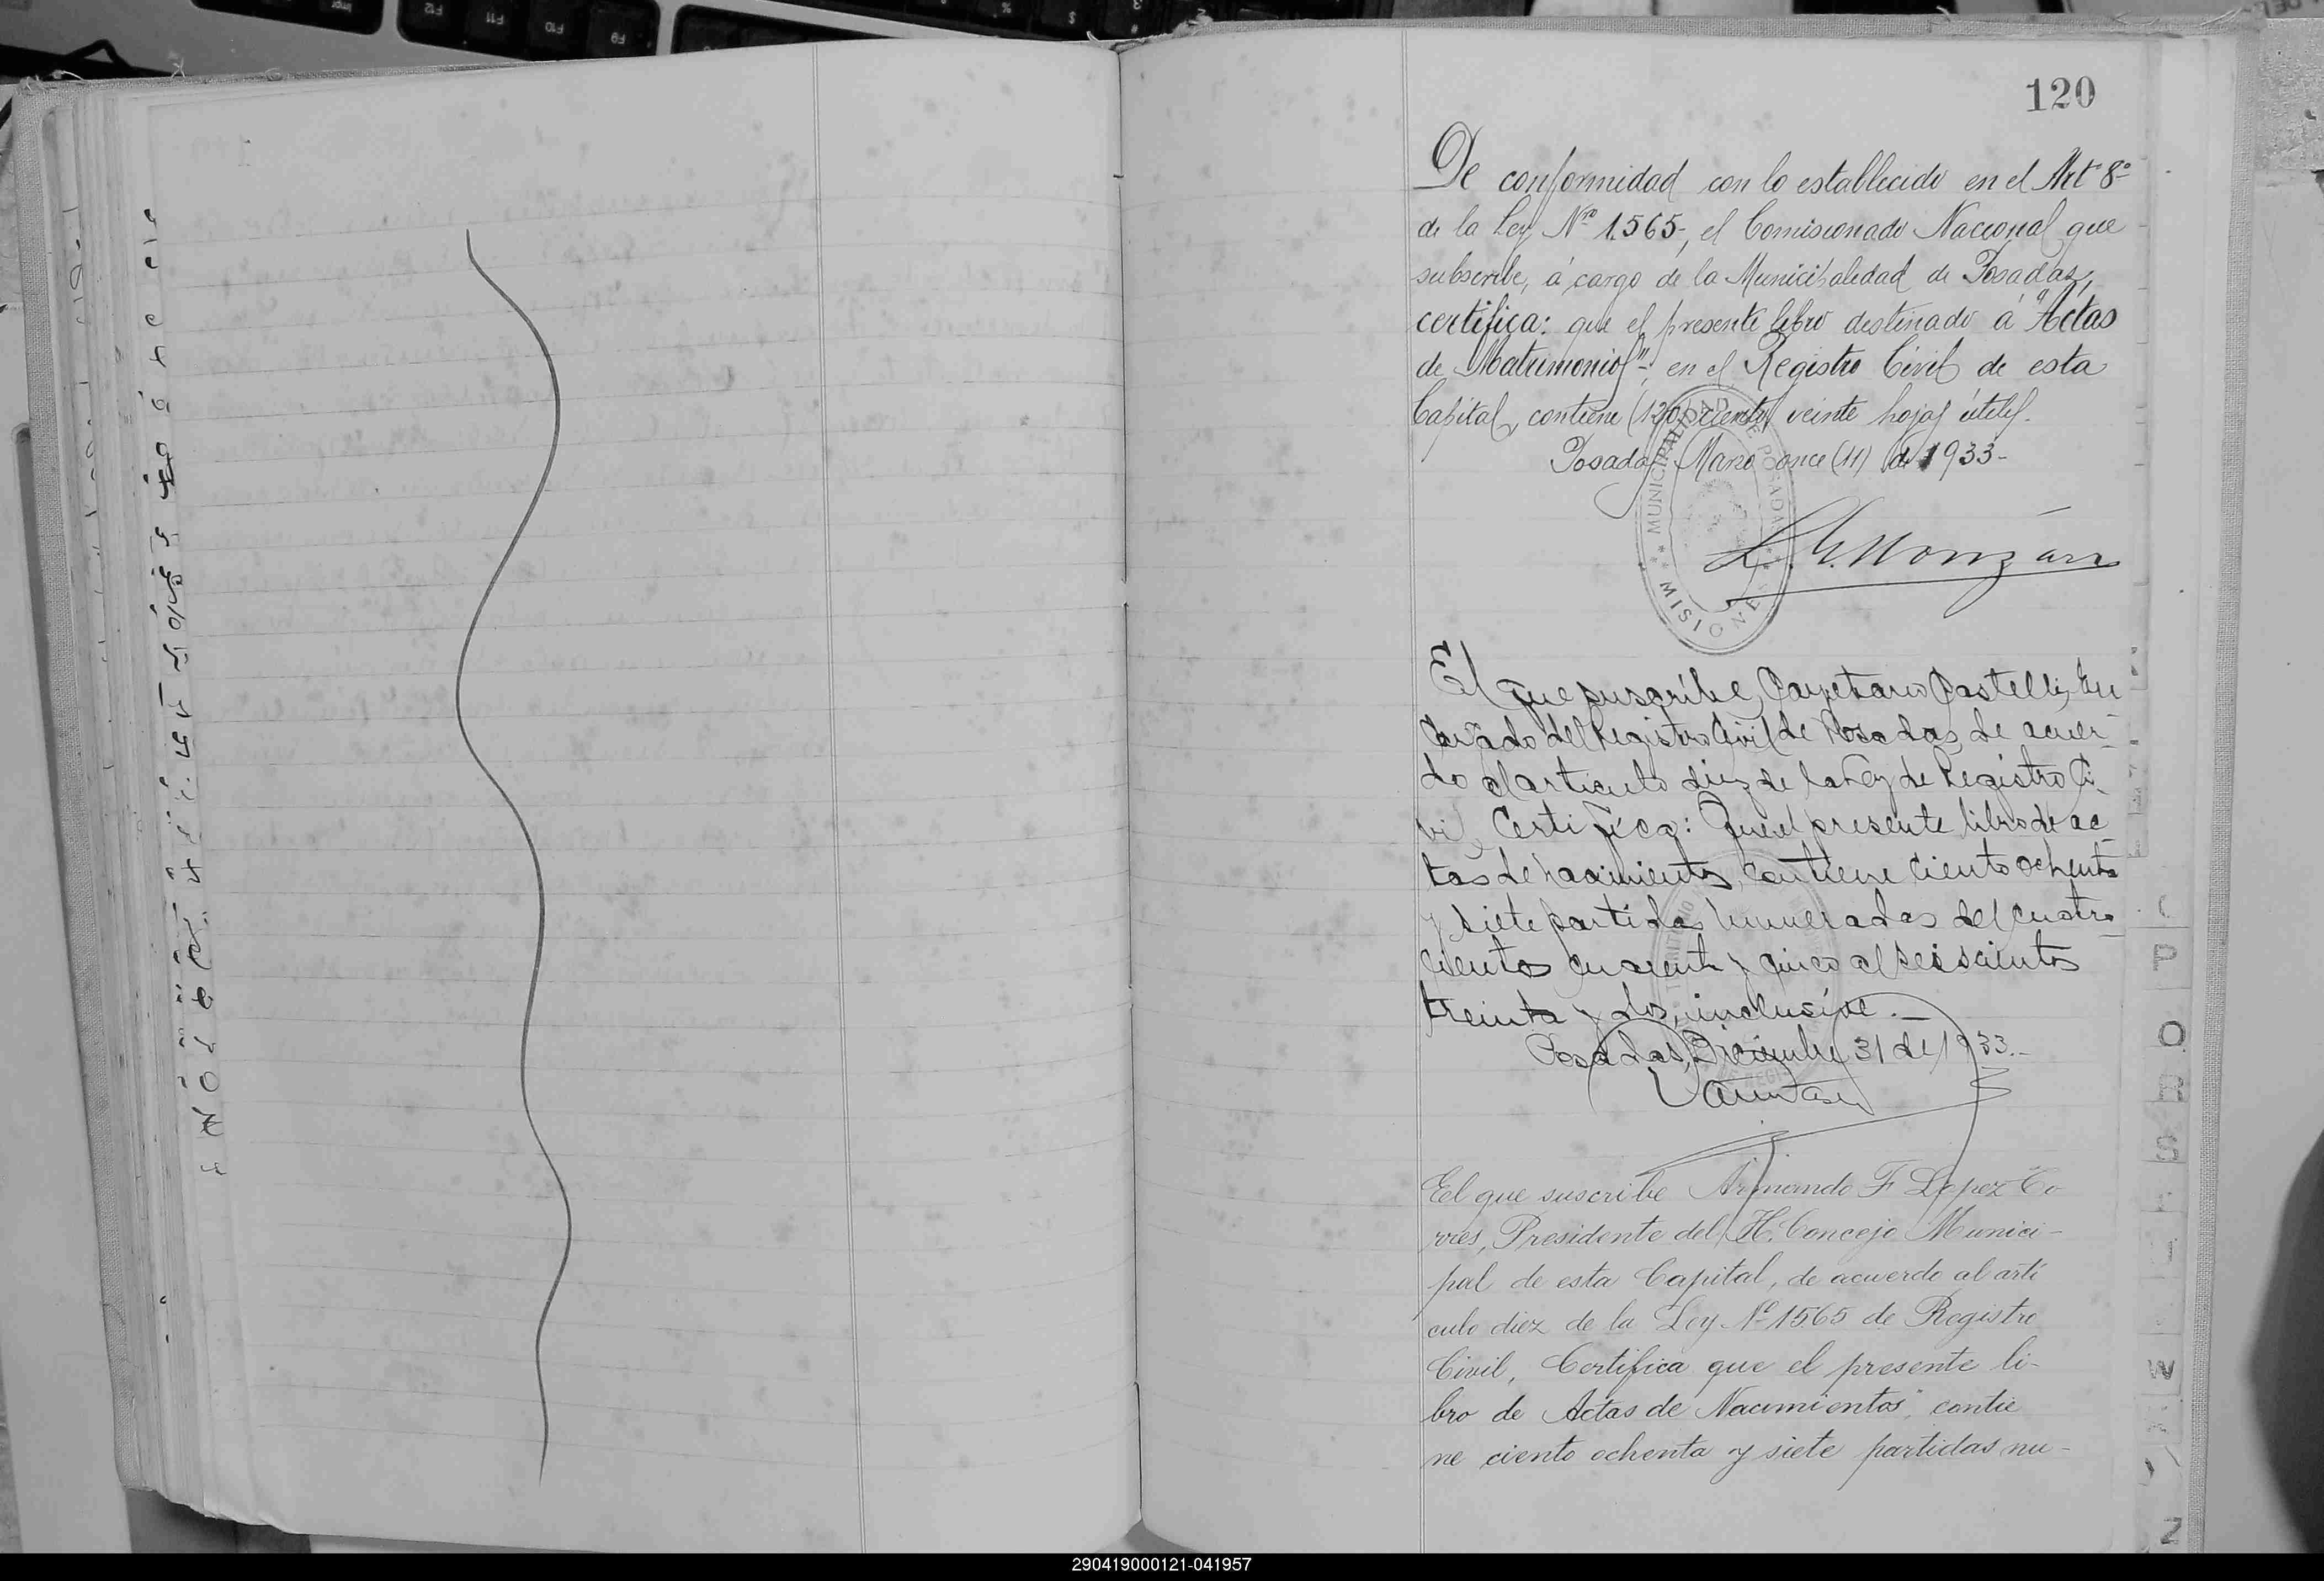 120
De conformidad con lo establecido en el Art 8º
de la Ley Nro 1.565-, el Comisionado Nacional que
subscribe, á cargo de la Municipalidad de Posadas,
certifica: que el presente libro destinado á "Actas
de Matrimonios"-, en el Registro Civil de esta
Capital, contiene (120) ciento veinte hojas útiles.
Posadas Marzo once (11) de 1933-
MUNICIPALIDAD DE POSADAS
MISIONES
Monzón
El que suscribe, Cayetano Castelli, En
cargado del Registro Civil de Posadas, de acuer-
do al articulo diez de la Ley de Registro Ci-
vil, Certifica: Que el presente libro de ac-
tas de nacimientos, contiene ciento ochenta
y siete partidas numeradas del cuatro-
cientos cuarenta y cinco al seiscientos
treinta y dos, inclusive.-
Posadas, Diciembre 31 de 1933.-
El que suscribe Armando F Lopez To
rres, Presidente del H. Concejo Munici-
pal de esta Capital, de acuerdo al arti
culo diez de la Ley Nº 1565 de Registro
Civil, Certifica que el presente li-
bro de Actas de Nacimientos, contie
ne ciento ochenta y siete partidas nu-
P
Q
R
S
W
Z
290419000121-041957